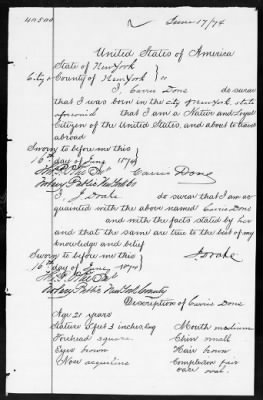 2 June 17/74
United States of America
State of New York
City & County of New York } ss
I, Carrie Done do swear
that I was born in the city of New York, state
aforesaid that I am a Native and Loyal
Citizen of the United States, and about to travel
abroad
Sworn to before me this
16th day of June 1874
Carrie Done
Notary Public New York Co
I, J Doake do swear that I am ac
quainted with the above named Carrie Done
and with the facts stated by her
and that the same are true to the best of my
knowledge and belief
Sworn to before me this J Doake
16th day of June 1874
Notary Public New York County
Description of Carrie Done
Age 21 years
Stature 5 feet 3 inches, Eng Mouth medium
Forehead square Chin small
Eyes brown Hair brown
Nose aquiline Complexion fair
Face oval